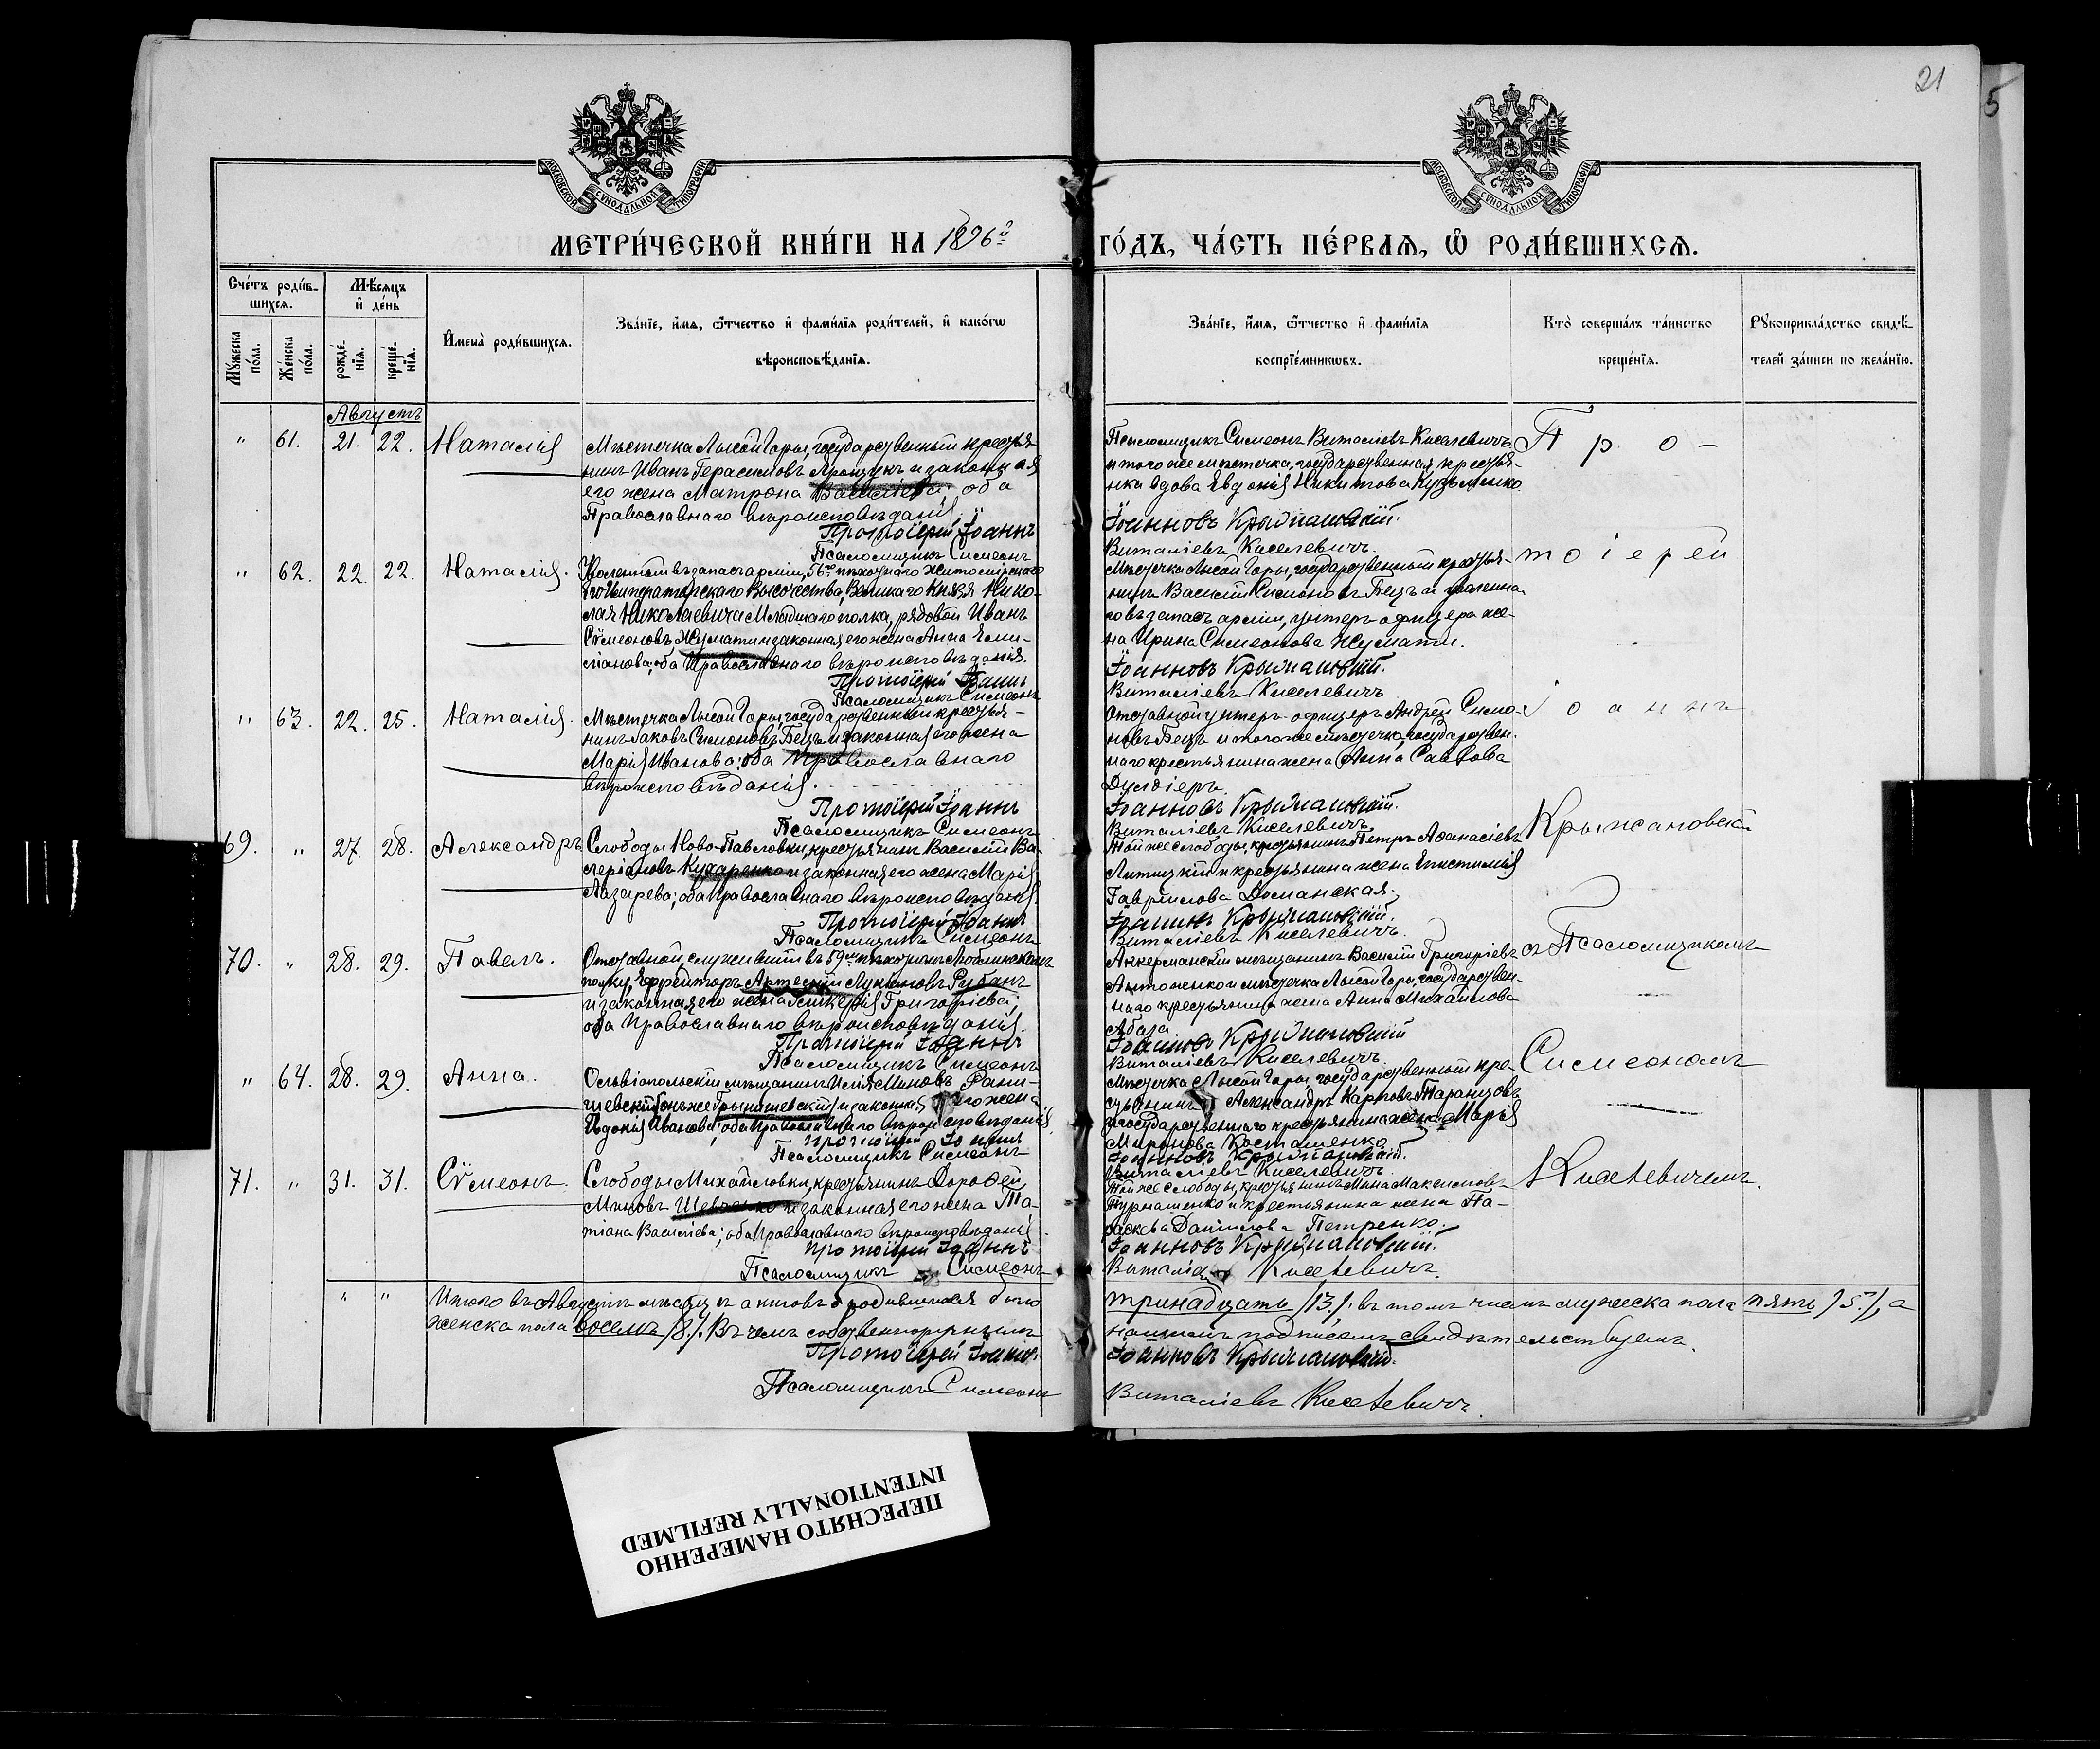 21
5
МОСКОВСКОЙ СУНОДАЛЬНОЙ ТИПОГРАФІИ
МОСКОВСКОЙ СУНОДАЛЬНОЙ ТИПОГРАФІИ
МЕТРИ́ЧЕСКОЙ КНИ́ГИ НА 1896й
ГО́ДЪ, ЧА́СТЬ ПЕ́РВАЯ, Ѡ РОДИ́ВШИХСЯ.
Сче́тъ роди́в-
шихся.
Мѣ́сяцъ
и де́нь
Му́жеска по́ла.
Же́нска по́ла.
рожде́-нїя.
креще́-нїя.
Имена̀ роди́вшихся.
Зва́нїе, и́мя, ѿтчество и фами́лїя роди́телей, и како́гѡ
вѣроисповѣ́данїя.
Зва́нїе, и́мя, ѿтчество и фами́лїя
воспрїе́мниковъ.
Кто̀ соверша́лъ та́инство
креще́нїя.
Рукоприкла́дство свидѣ́-
телей за́писи по жела́нїю.
Августъ
" 61. 21. 22. Наталія
Мѣстечка Лысой Горы, государственный крестья-
нинъ Иванъ Герасимовъ Лрощукъ и законная
его жена Матрона Васильева; оба
Православнаго вѣроисповѣданія.
Протоіерей Іоаннъ
Псаломщикъ Симеонъ
Псаломщикъ Симеонъ Виталіевъ Киселевичъ
и того же мѣстечка, государственная крестья-
нка вдова Евдокія Никитова Кузьменко.
Іоанновъ Крыжановскій.
Виталіевъ Киселевичъ.
П р о -
" 62. 22. 22. Наталія.
Уволенный въ запасъ арміи, 56го пѣхотнаго Житомірскаго
Его Императорскаго Высочества, Великаго Князя Нико-
лая Николаевича Младшаго полка, рядовой Иванъ
Сѵмеоновъ Жумати и законная его жена Анна Еми-
ліанова; оба Православнаго вѣроисповѣданія.
Протоіерей Іоаннъ
Псаломщикъ Симеонъ
Мѣстечка Лысой Горы, государственный крестья-
нинъ Василій Симоновъ Бецъ и уволенна-
го въ запасъ арміи, унтеръ офицера же-
на Ирина Симеонова Жумати.
Іоанновъ Крыжановскій.
Виталіевъ Киселевичъ
т о і е р е й
" 63. 22. 25. Наталія.
Мѣстечка Лысой Горы, государственный крестья-
нинъ Іаковъ Симоновъ Бецъ и законная его жена
Марія Иванова; оба Православнаго
вѣроисповѣданія.
Протоіерей Іоаннъ
Псаломщикъ Симеонъ
Отставной унтеръ-офицеръ Андрей Симо-
новъ Бецъ и того же мѣстечка, государствен-
наго крестьянина жена Анна Саввова
Іоанновъ Крыжановскій.
Виталіевъ Киселевичъ
І о а н н ъ
69. " 27. 28. Александръ
Слободы Ново-Павловки, крестьянинъ Василій Ва-
леріановъ Кухаренко и законная его жена Марія
Лазарева; оба Православнаго вѣроисповѣданія.
Протоіерей Іоаннъ
Псаломщикъ Симеонъ
Той же слободы, крестьянинъ Петръ Аѳанасіевъ
и крестьянина жена Епистимія
Гавріилова Доманская.
Іоанновъ Крыжановскій.
Виталіевъ Киселевичъ.
Крыжановскій
70. " 28. 29. Павелъ.
Отставной, служившій въ 59мъ пѣхотномъ Люблинскомъ
полку, Ефрейторъ Артемій Лукиновъ Рибакъ
и законная его жена Гликерія Григоріева;
оба Православнаго вѣроисповѣданія.
Протоіерей Іоаннъ
Псаломщикъ Симеонъ
Аккерманскій мѣщанинъ Василій Григоріевъ
Антоненко и мѣстечка Лысой Горы, государствен-
наго крестьянина жена Анна Михайлова
Абаза.
Іоанновъ Крыжановскій
Виталіевъ Киселевичъ.
съ Псаломщикомъ
" 64. 28. 29. Анна.
Ольвіопольскій мѣщанинъ Илія Миновъ Рани-
шевскій (онъ же Гранишевскій) и законная его жена
Евдокія Иванова; оба Православнаго вѣроисповѣданія.
Протоіерей Іоаннъ
Псаломщикъ Симеонъ
Мѣстечка Лысой Горы, государственный кре-
стьянинъ Александръ Карповъ Таранцовъ
и государственнаго крестьянина жена Марія
Миронова Косташенко
Іоанновъ Крыжановскій.
Виталіевъ Киселевичъ.
Симеономъ
71. " 31. 31. Сѵмеонъ.
Слободы Михайловки, крестьянинъ Дороѳей
Миновъ Шевченко и законная его жена Та-
тіана Васильева; оба Православнаго вѣроисповѣданія.
Протоіерей Іоаннъ
Псаломщикъ Симеонъ
Той же слободы, крестьянинъ Мина Максимовъ
и крестьянина жена Па-
раскева Даніилова Петренко.
Іоанновъ Крыжановскій.
Виталіевъ Киселевичъ.
Киселевичемъ.
" " Итого въ Августѣ мѣсяцѣ актовъ о родившихся было
тринадцать /13./. въ томъ числѣ мужеска пола пять /5./, а
женска пола восемь /8./. Въ чемъ собственноручнымъ
нашимъ подписомъ свидѣтельствуемъ.
Протоіерей Іоаннъ
Іоанновъ Крыжановскій.
Псаломщикъ Симеонъ
Виталіевъ Киселевичъ.
ПЕРЕСНЯТО НАМЕРЕННО
INTENTIONALLY REFILMED